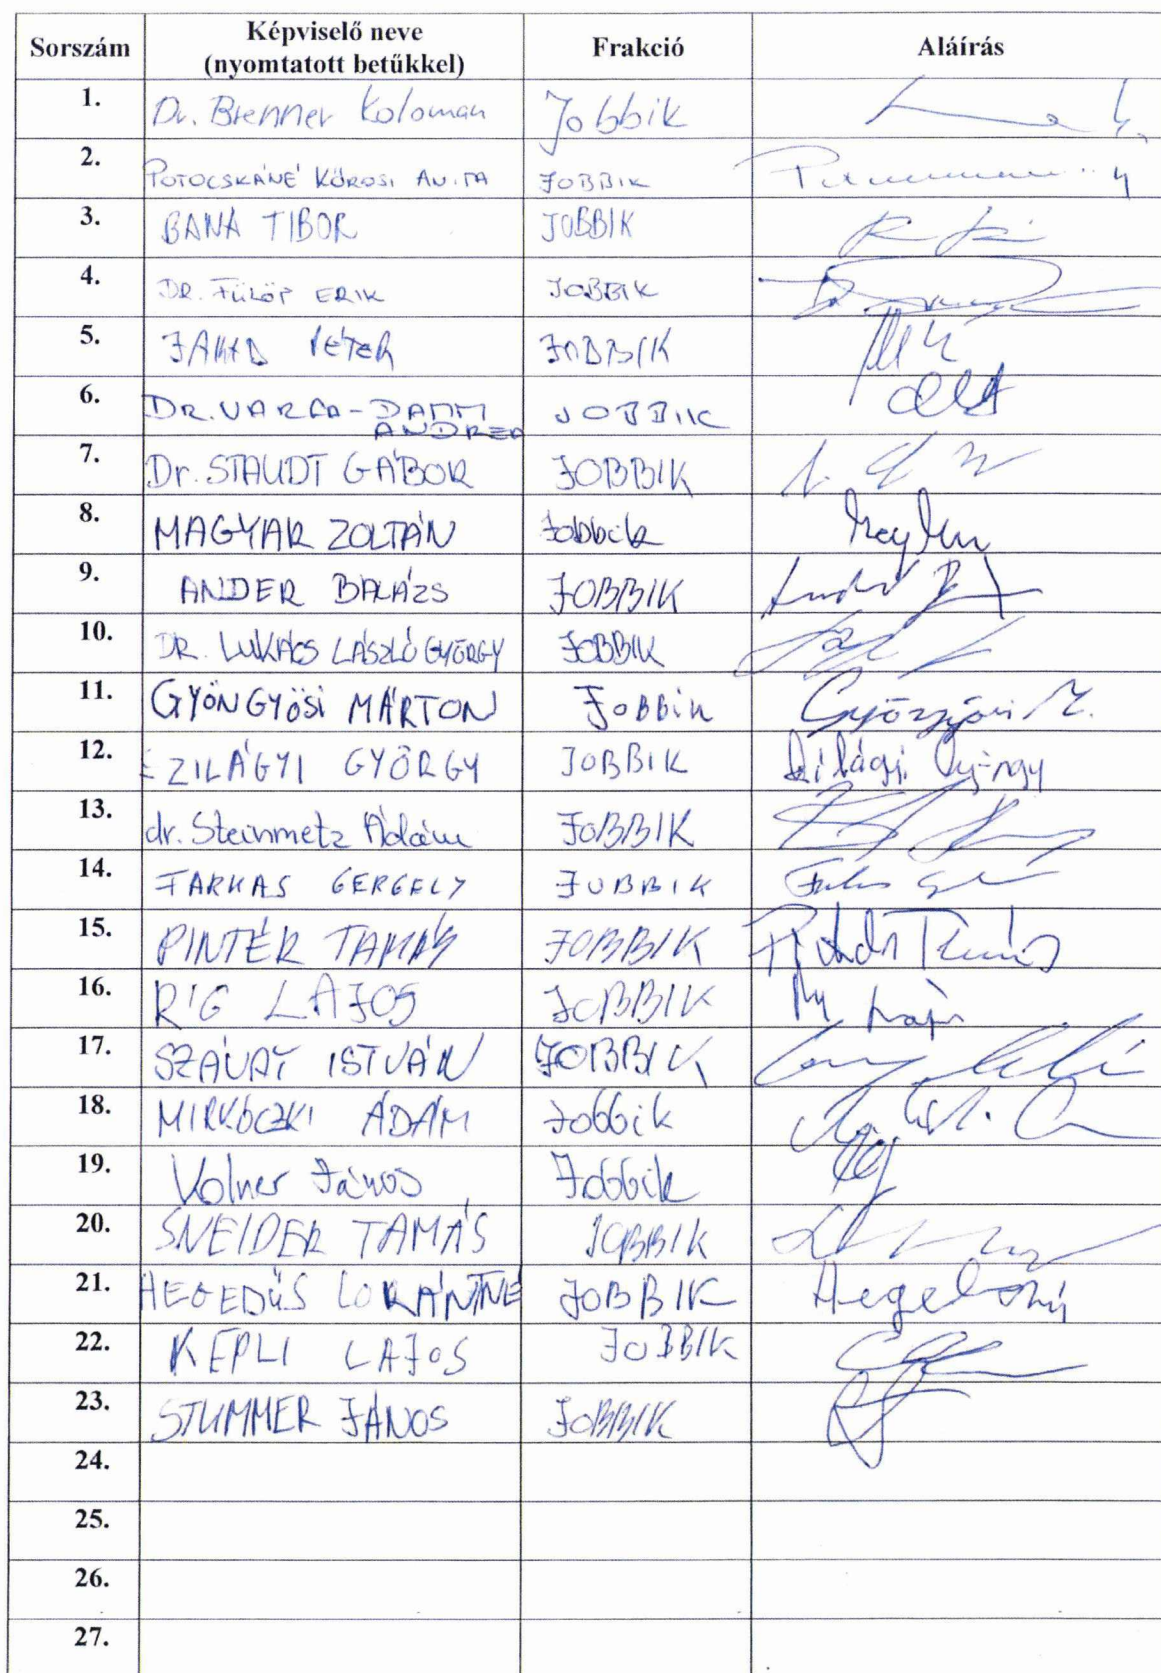 Sorszám Képviselő neve (nyomtatott betűkkel) Frakció Aláírás
1. Dr. Brenner Koloman Jobbik
2. POTOCSKÁNÉ KŐRÖSI ANITA JOBBIK
3. BANA TIBOR JOBBIK
4. DR. FÜLÖP ERIK JOBBIK
5. JAKAB PÉTER JOBBIK
6. DR. VARGA-DAMM ANDREA JOBBIK
7. Dr. STAUDT GÁBOR JOBBIK
8. MAGYAR ZOLTÁN Jobbik
9. ANDER BALÁZS JOBBIK
10. DR. LUKÁCS LÁSZLÓ GYÖRGY JOBBIK
11. GYÖNGYÖSI MÁRTON JOBBIK Gyöngyösi M.
12. SZILÁGYI GYÖRGY JOBBIK Szilágyi György
13. dr. Steinmetz Ádám JOBBIK
14. FARKAS GERGELY JOBBIK
15. PINTÉR TAMÁS JOBBIK Pintér Tamás
16. RIG LAJOS JOBBIK Rig Lajos
17. SZÁVAY ISTVÁN JOBBIK
18. MIRKÓCZKI ÁDÁM Jobbik
19. Volner János Jobbik
20. SNEIDER TAMÁS JOBBIK
21. HEGEDŰS LORÁNTNÉ JOBBIK
22. KEPLI LAJOS JOBBIK
23. STUMMER JÁNOS JOBBIK
24.
25.
26.
27.